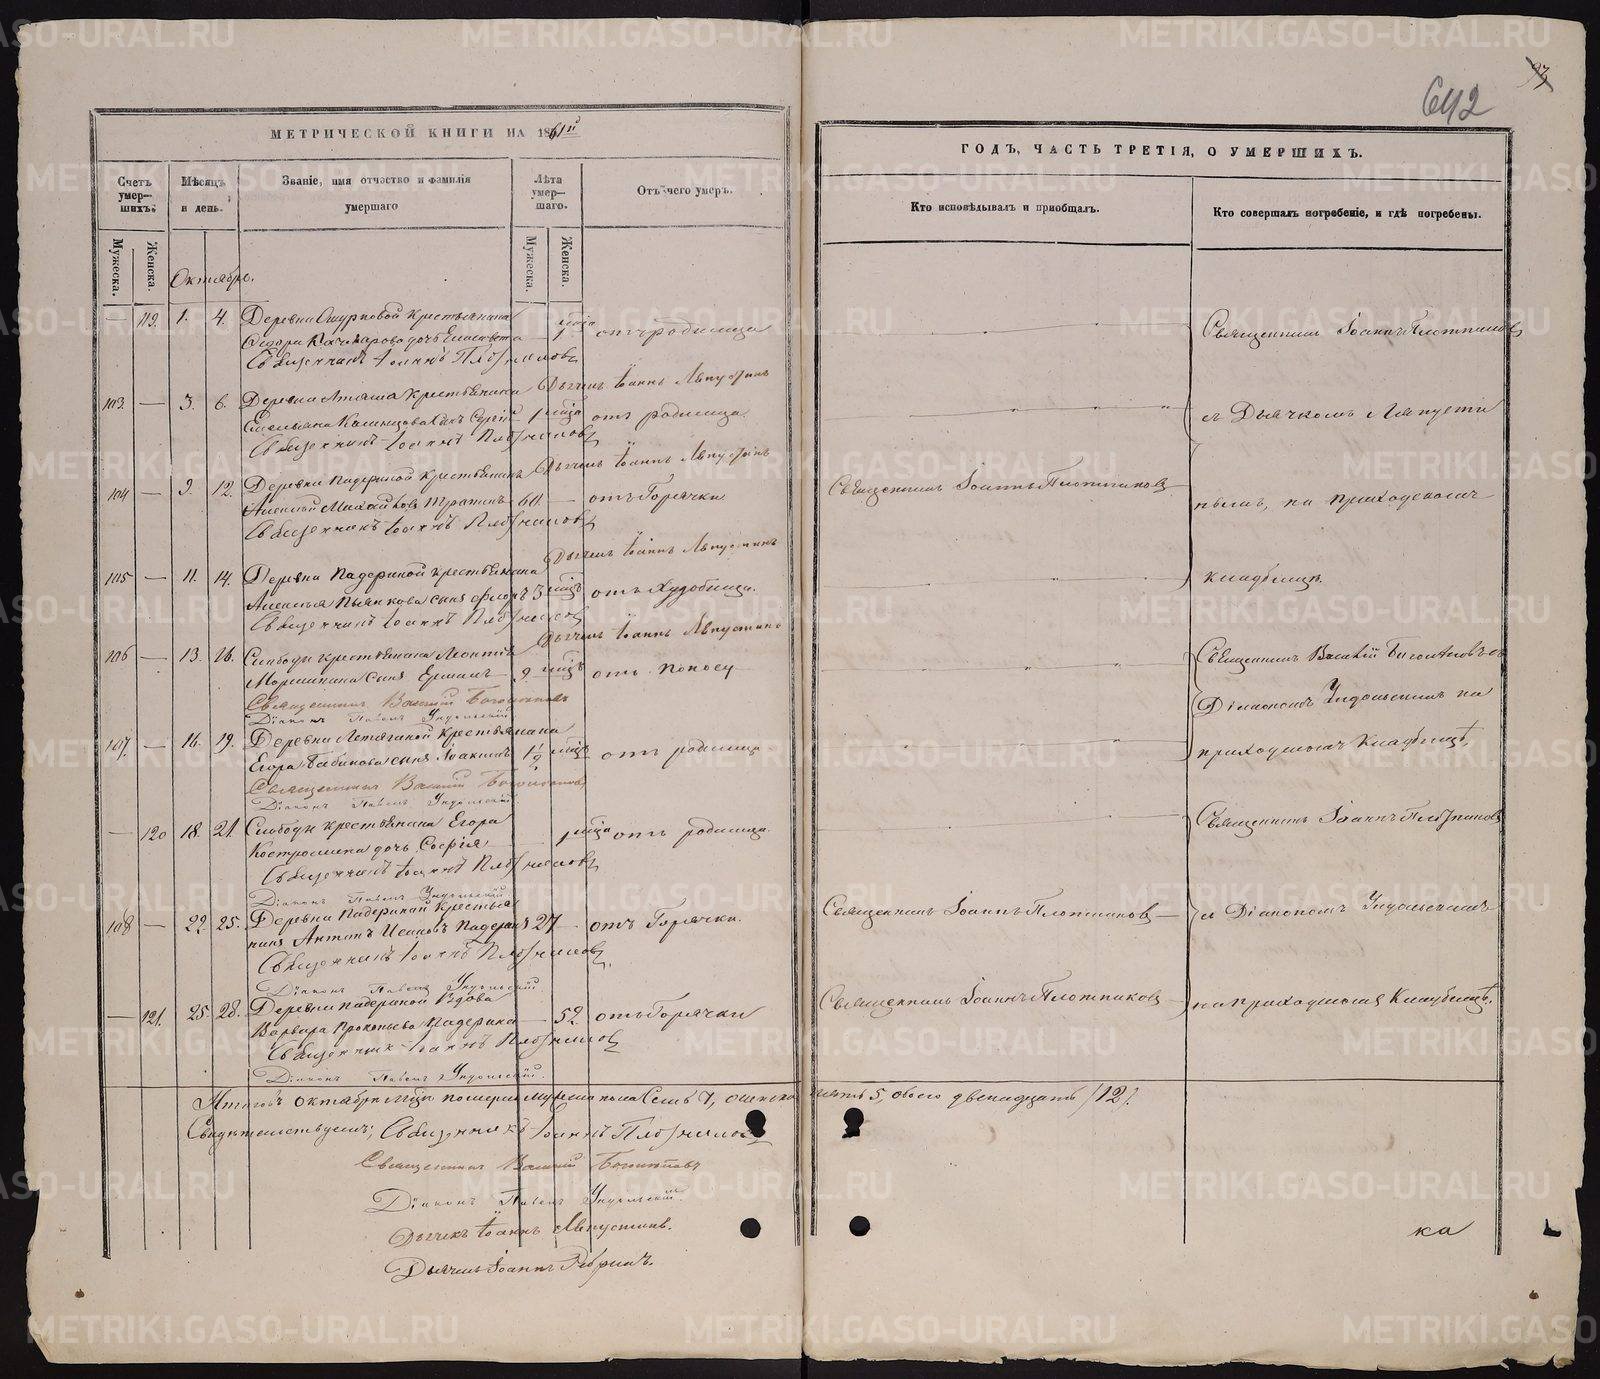 642
МЕТРИЧЕСКОЙ КНИГИ НА 1861й
ГОДЪ, ЧАСТЬ ТРЕТІЯ, О УМЕРШИХЪ.
Счетъ умер—шихъ.
Мѣсяцъ и день.
Званіе, имя отчество и фамилія умершаго
Лѣта умер—шаго.
Отъ чего умеръ.
Кто исповѣдывалъ и пріобщалъ.
Кто совершалъ погребеніе, и гдѣ погребены.
Мужеска.
Женска.
Мужеска.
Женска.
Октябрь.
— 119. 1. 4. Деревни Ошурковой крестьянина — 1 мца отъ родимца Священникъ Іоаннъ Плотниковъ
дочь Елисавета
Священникъ Іоаннъ Плотниковъ
Дьячекъ Іоаннъ Ляпустинъ
103. — 3. 6. Деревни крестьянина 1 мца отъ родимца съ Дьячкомъ Ляпусти
сынъ Сергій
Священникъ Іоаннъ Плотниковъ
Дьячекъ Іоаннъ Ляпустинъ
104 — 9. 12. Деревни Падериной крестьянинъ 60 — отъ Горячки Священникъ Іоаннъ Плотниковъ нымъ, на приходскомъ
Алексѣй Михайловъ
Священникъ Іоаннъ Плотниковъ
Дьячекъ Іоаннъ Ляпустинъ
105 — 11. 14. Деревни Падериной крестьянина 3 мцъ отъ Худобища. кладбищѣ.
Алексѣя Пьянкова сынъ Флоръ
Священникъ Іоаннъ Плотниковъ
Дьячекъ Іоаннъ Ляпустинъ
106 — 13. 16. Слободы крестьянина Леонтія 9 мцъ отъ Поносу Священникъ Василій Боголѣповъ съ
сынъ Ермилъ Діакономъ Ундольскимъ на
Священникъ Василій Боголѣповъ
Діаконъ Павелъ Ундольскій
107. — 16. 19. Деревни крестьянина 1 1/2 мцъ отъ родимца приходскомъ Кладбищѣ,
Егора Бабинова сынъ Іоакимъ
Священникъ Василій Боголѣповъ
Діаконъ Павелъ Ундольскій
— 120 18. 21. Слободы крестьянина Егора 1 мца отъ родимца. Священникъ Іоаннъ Плотниковъ
Костромина дочь Софія
Священникъ Іоаннъ Плотниковъ
Діаконъ Павелъ Ундольскій.
108 — 22. 25. Деревни Падериной крестья 27 — отъ Горячки. Священникъ Іоаннъ Плотниковъ — съ Діакономъ Ундольскимъ
нинъ Антонъ Исаковъ Падеринъ
Священникъ Іоаннъ Плотниковъ.
Діаконъ Павелъ Ундольскій.
— 121. 25. 28. Деревни Падериной Вдова — 52. отъ Горячки Священникъ Іоаннъ Плотниковъ — на приходскомъ Кладбищѣ.
Варвара Прокопьева Падерина
Священникъ Іоаннъ Плотниковъ
Діаконъ Павелъ Ундольскій.
Итого въ октябрѣ мцѣ померло мужеска пола Семь 7, а женска пять 5, обоего двенадцать /12/.
Свидѣтельствуемъ: Священникъ Іоаннъ Плотниковъ
Священникъ Василій Боголѣповъ
Діаконъ Павелъ Ундольскій.
Дьячекъ Іоаннъ Ляпустинъ.
Дьячекъ Іоаннъ
ка
METRIKI.GASO-URAL.RU